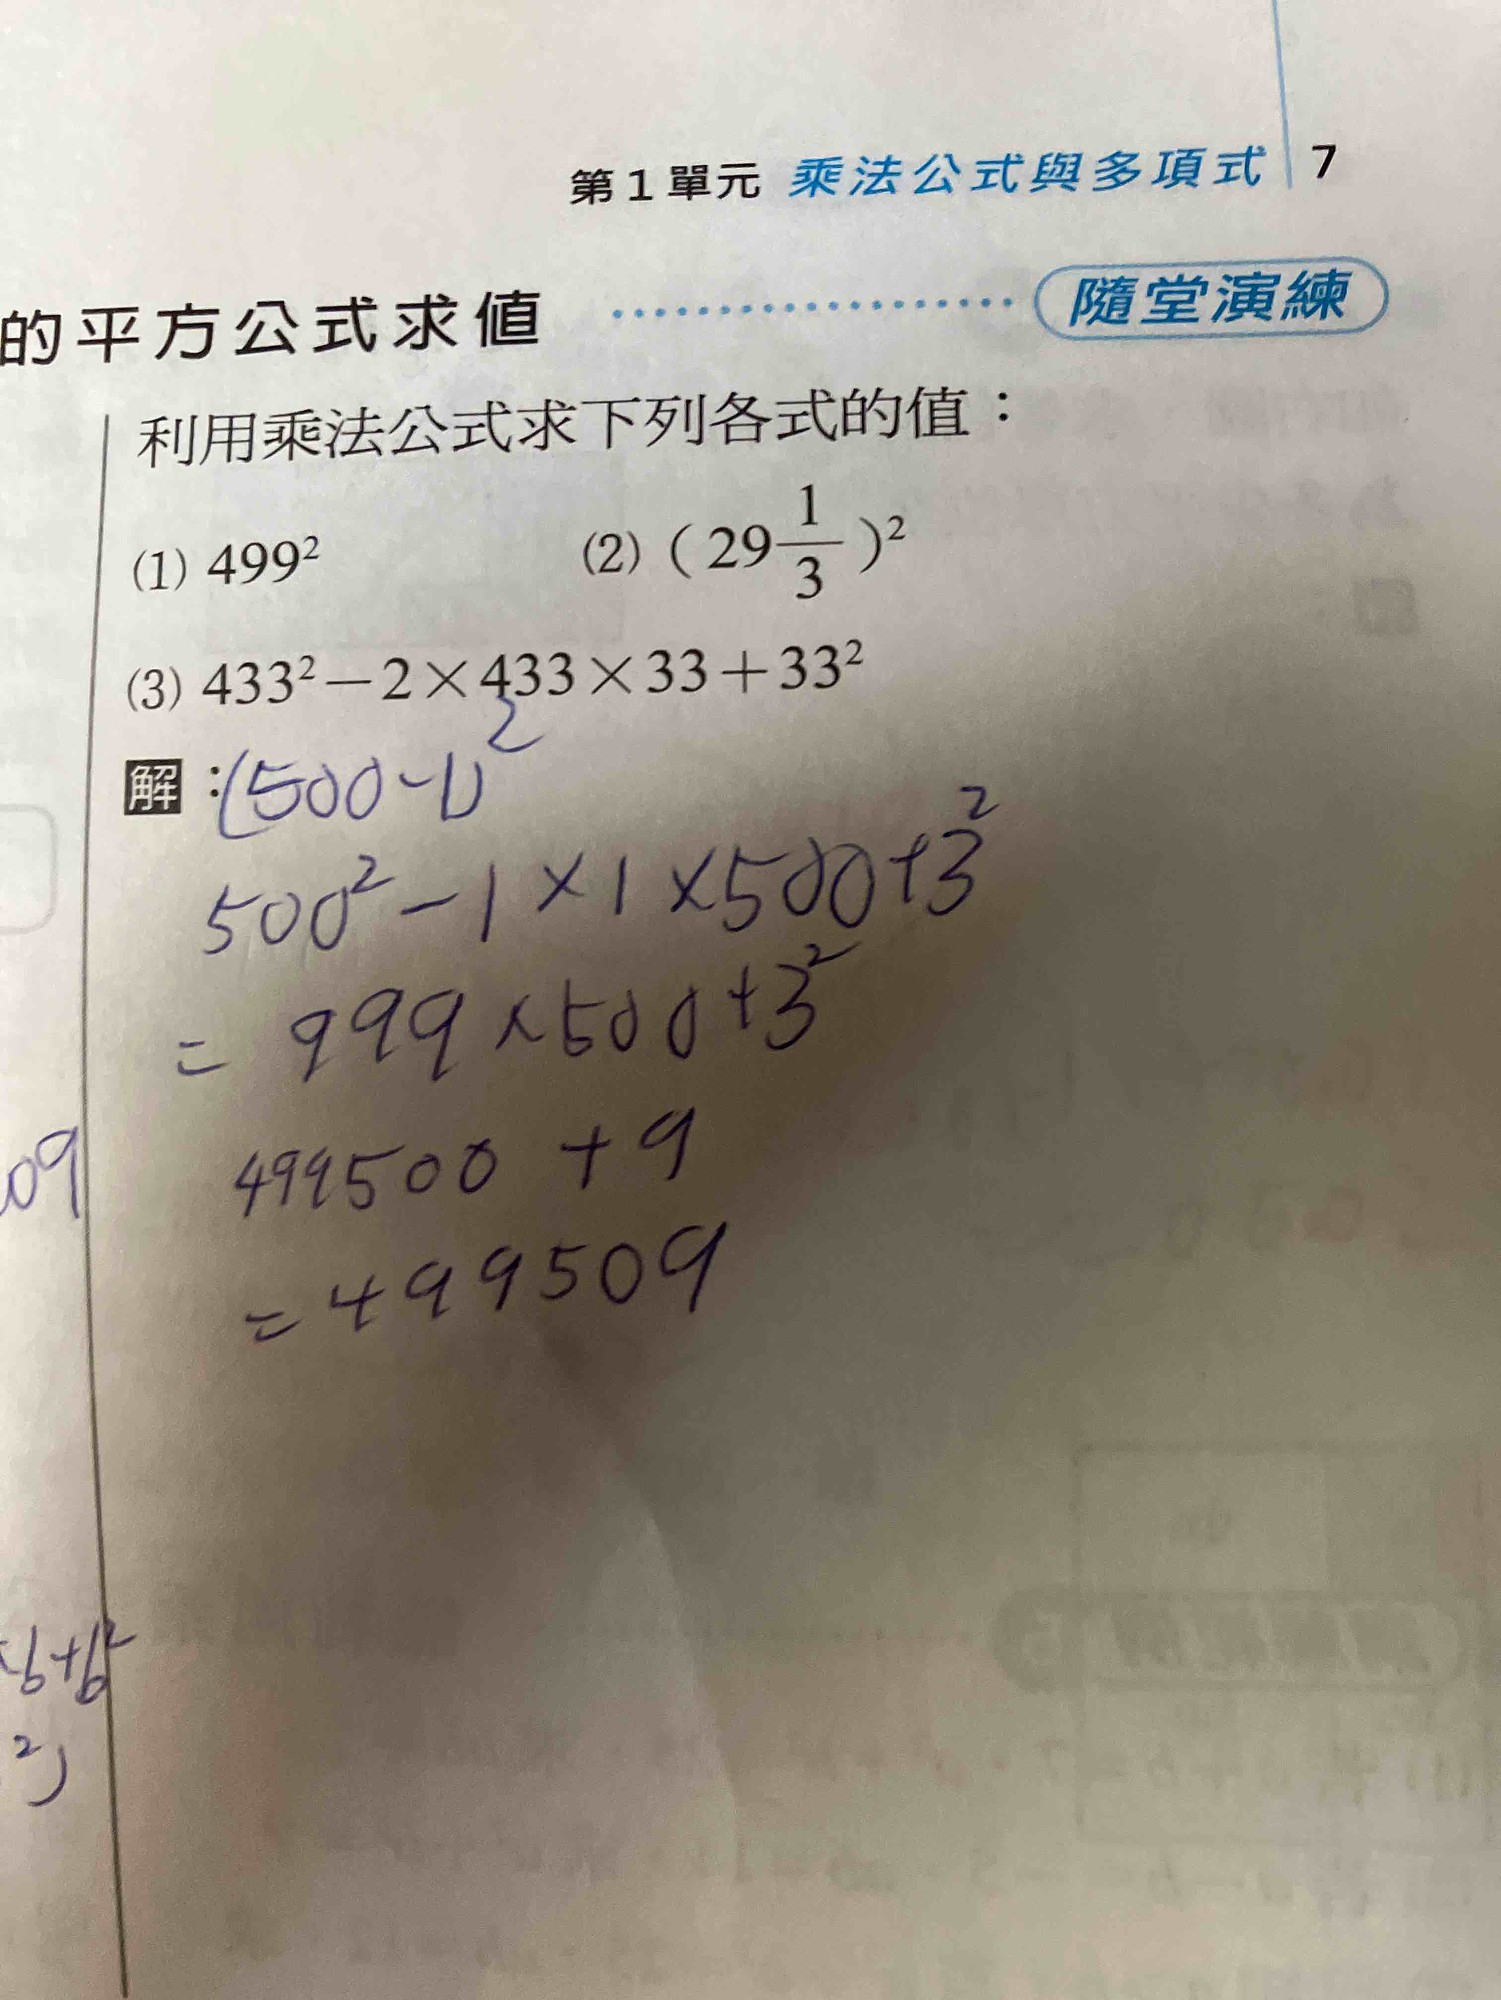 第1單元 乘法公式與多項式 7
的平方公式求值 隨堂演練
利用乘法公式求下列各式的值：
(1) 499² (2) ( 29 1/3 )²
(3) 433²－2×433×33＋33²
解：(500-1)²
500²-1×1×500+3²
= 999×500+3²
09
499500 + 9
=499509
b+b²
²)